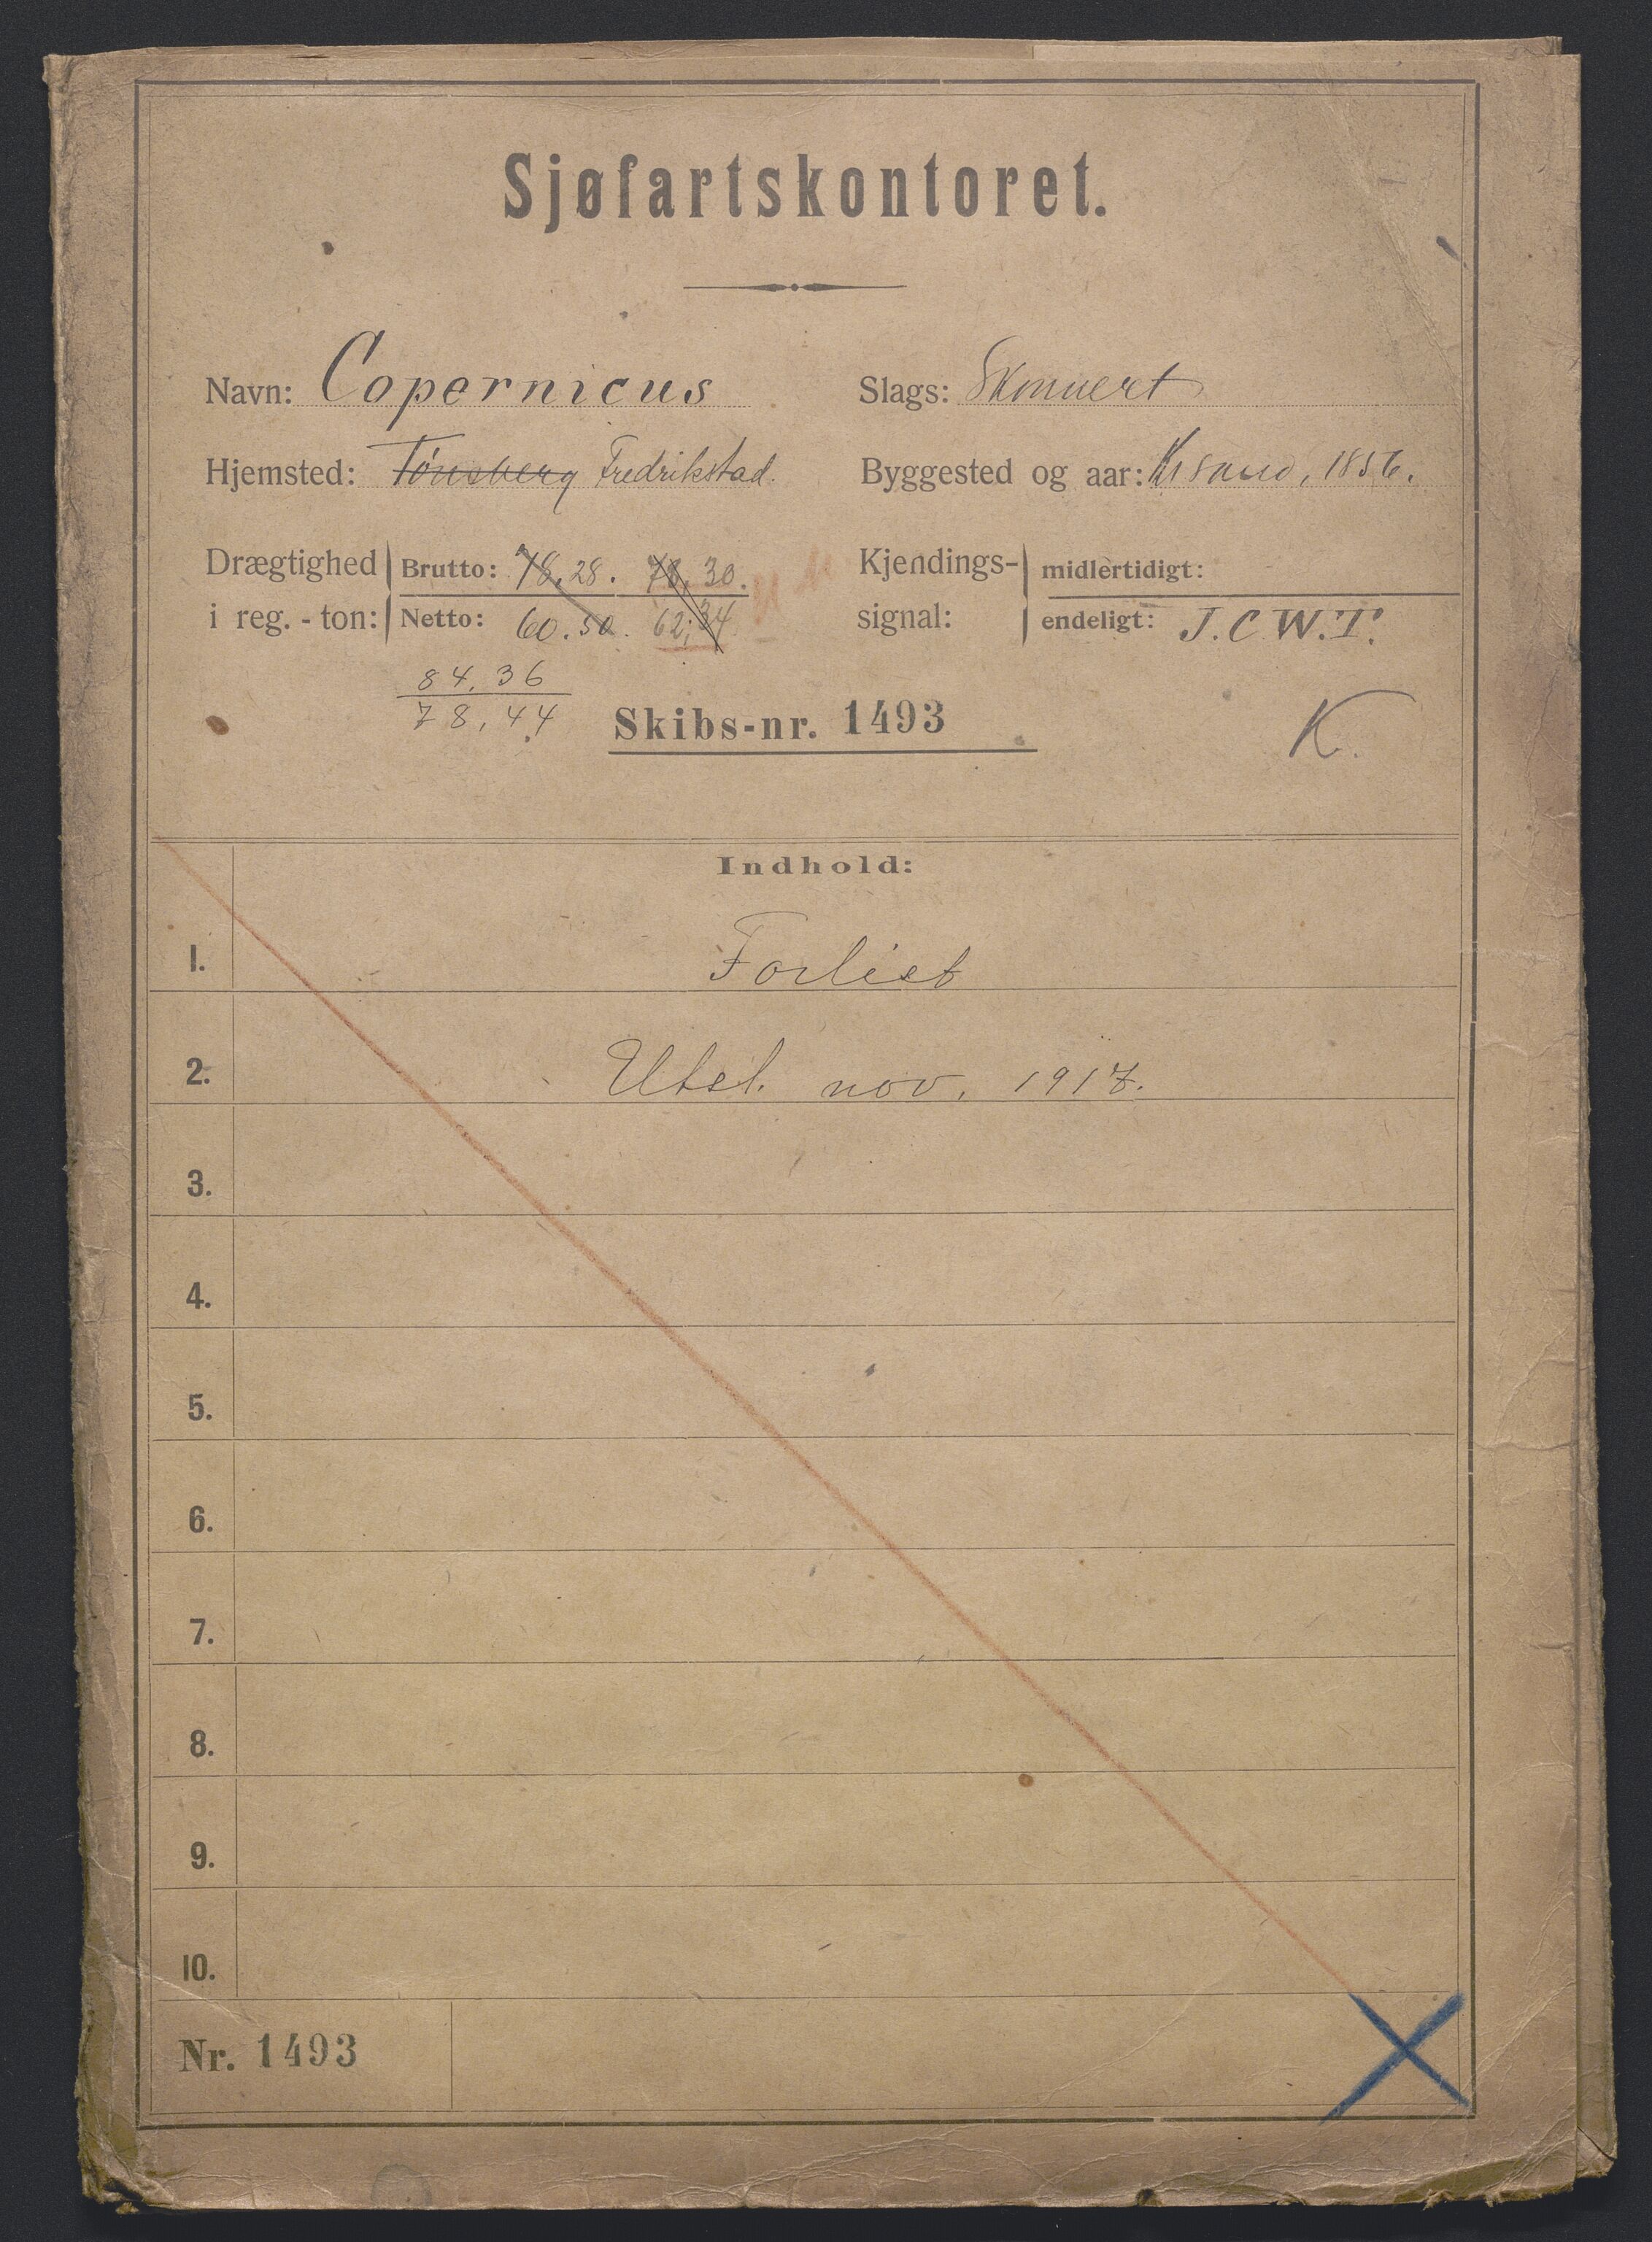 Sjøfartskontoret.
Navn: Copernicus
Slags: Skonnert
Hjemsted: Tönsberg Fredrikstad.
Byggested og aar: Kr sand, 1856.
Drægtighed i reg. - ton:
Brutto: 78.28. 78,30.
Netto: 60.50. 62,34
84,36
78,44
Kjendings-signal:
midlertidigt:
endeligt: J.C.W.T.
Skibs-nr. 1493
K.
Indhold:
1. Forlist
2. Utsl. nov. 1917.
3.
4.
5.
6.
7.
8.
9.
10.
Nr. 1493